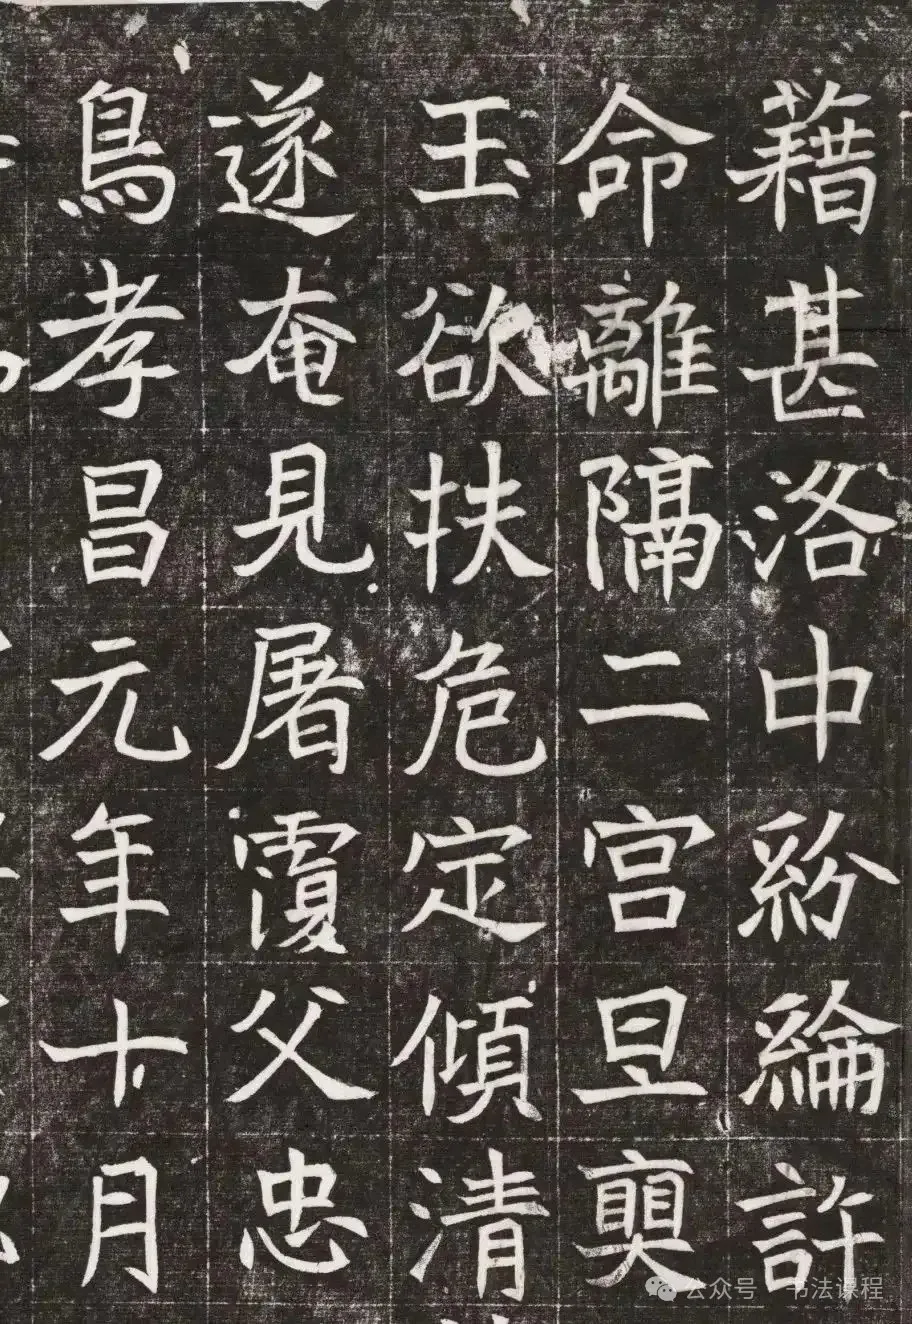 藉甚洛中紛綸許
命離隔二宮旦奭
玉欲扶危定傾清
遂奄見屠覆父忠
鳥孝昌元年十月
公众号 · 书法课程